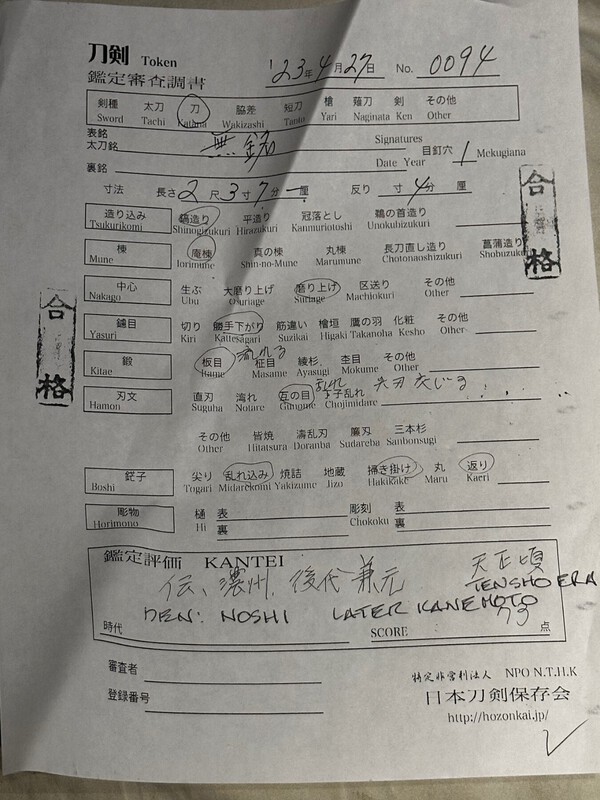 刀剣 Token
鑑定審査調書
'23年4月27日 No. 0094
剣種 太刀 刀 脇差 短刀 槍 薙刀 剣 その他
Sword Tachi Katana Wakizashi Tanto Yari Naginata Ken Other
表銘
太刀銘 無銘 Signatures 目釘穴 1 Mekugiana
裏銘 Date Year
寸法 長さ 2尺3寸7分一厘 反り 寸4分 厘
造り込み 鎬造り 平造り 冠落とし 鵜の首造り
Tsukurikomi Shinogizukuri Hirazukuri Kanmuriotoshi Unokubizukuri
棟 庵棟 真の棟 丸棟 長刀直し造り 菖蒲造り
Mune Iorimune Shin-no-Mune Marumune Chotonaoshizukuri Shobuzukuri
中心 生ぶ 大磨り上げ 磨り上げ 区送り その他
Nakago Ubu O'uriage Suriage Machiokuri Other
鑢目 切り 勝手下がり 筋違い 檜垣 鷹の羽 化粧 その他
Yasuri Kiri Kattesagari Suzikai Higaki Takanoha Kesho Other
流れる
鍛 板目 柾目 綾杉 杢目 その他
Kitae Itame Masame Ayasugi Mokume Other
乱れ 尖刃交じる
刃文 直刃 湾れ 互の目 丁子乱れ
Hamon Suguha Notare Gunome Chojimidare
その他 皆焼 濤乱刃 簾刃 三本杉
Other Hitatsura Doranba Sudareba Sanbonsugi
鋩子 尖り 乱れ込み 焼詰 地蔵 掃き掛け 丸 返り
Boshi Togari Midarekomi Yakizume Jizo Hakikake Maru Kaeri
彫物 樋 表 彫刻 表
Horimono Hi 裏 Chokoku 裏
鑑定評価 KANTEI
伝、濃州、後代兼元 天正頃
TENSHO ERA
DEN: NOSHI LATER KANEMOTO
時代 SCORE 73 点
審査者
登録番号
特定非営利法人 NPO N.T.H.K
日本刀剣保存会
http://hozonkai.jp/
合格
合格